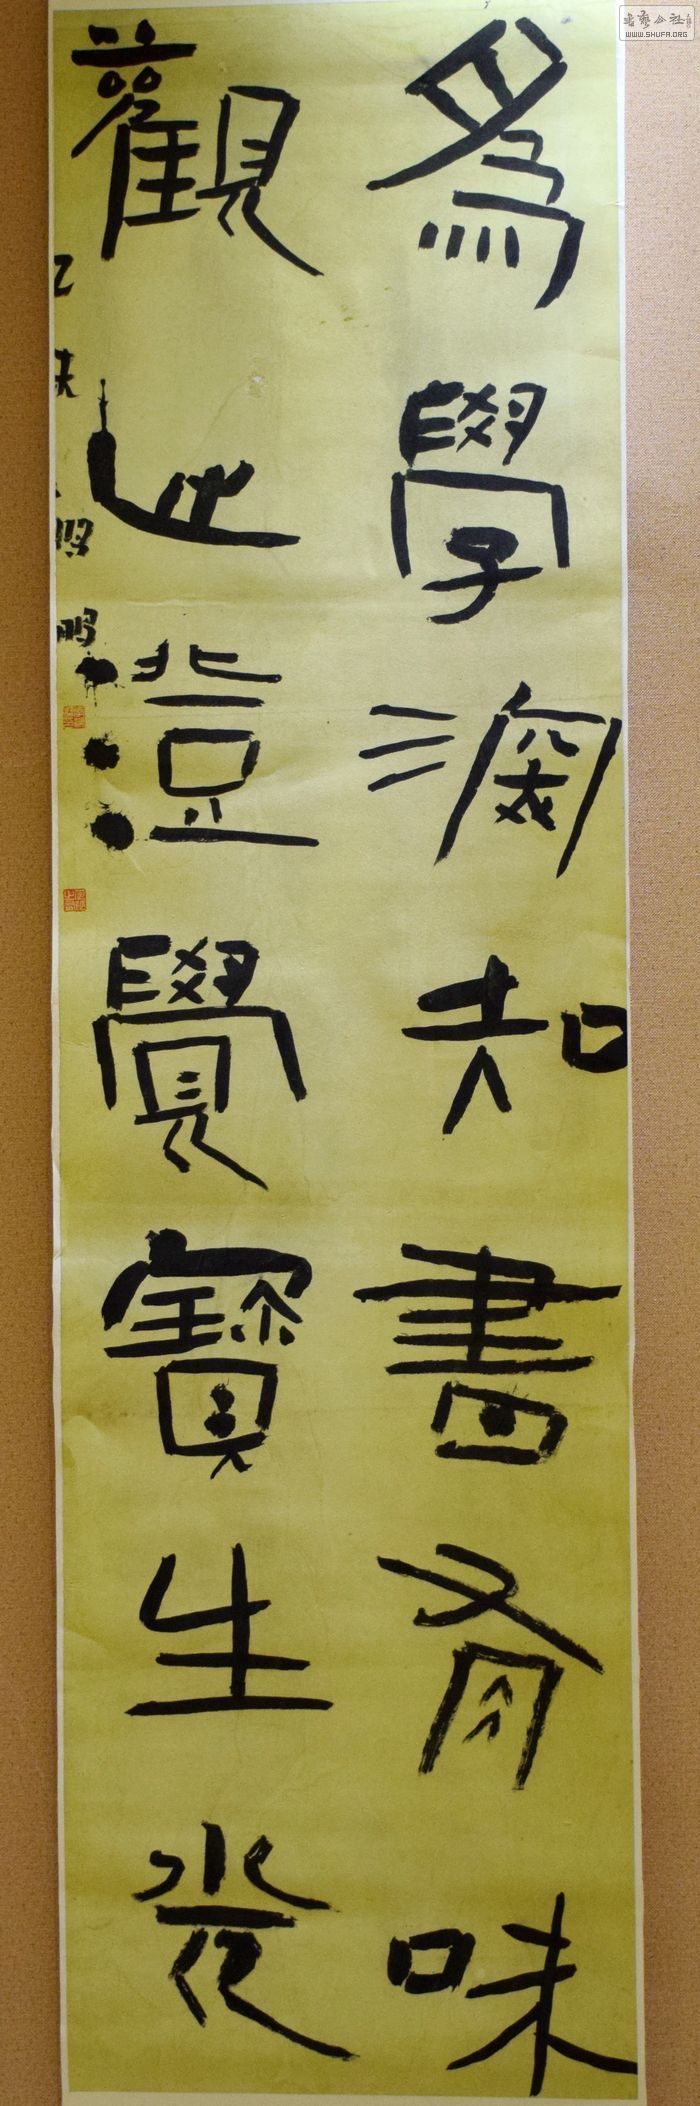 書藝公社
WWW.SHUFA.ORG
爲學深知書有味
觀心澄覺寶生光
乙未